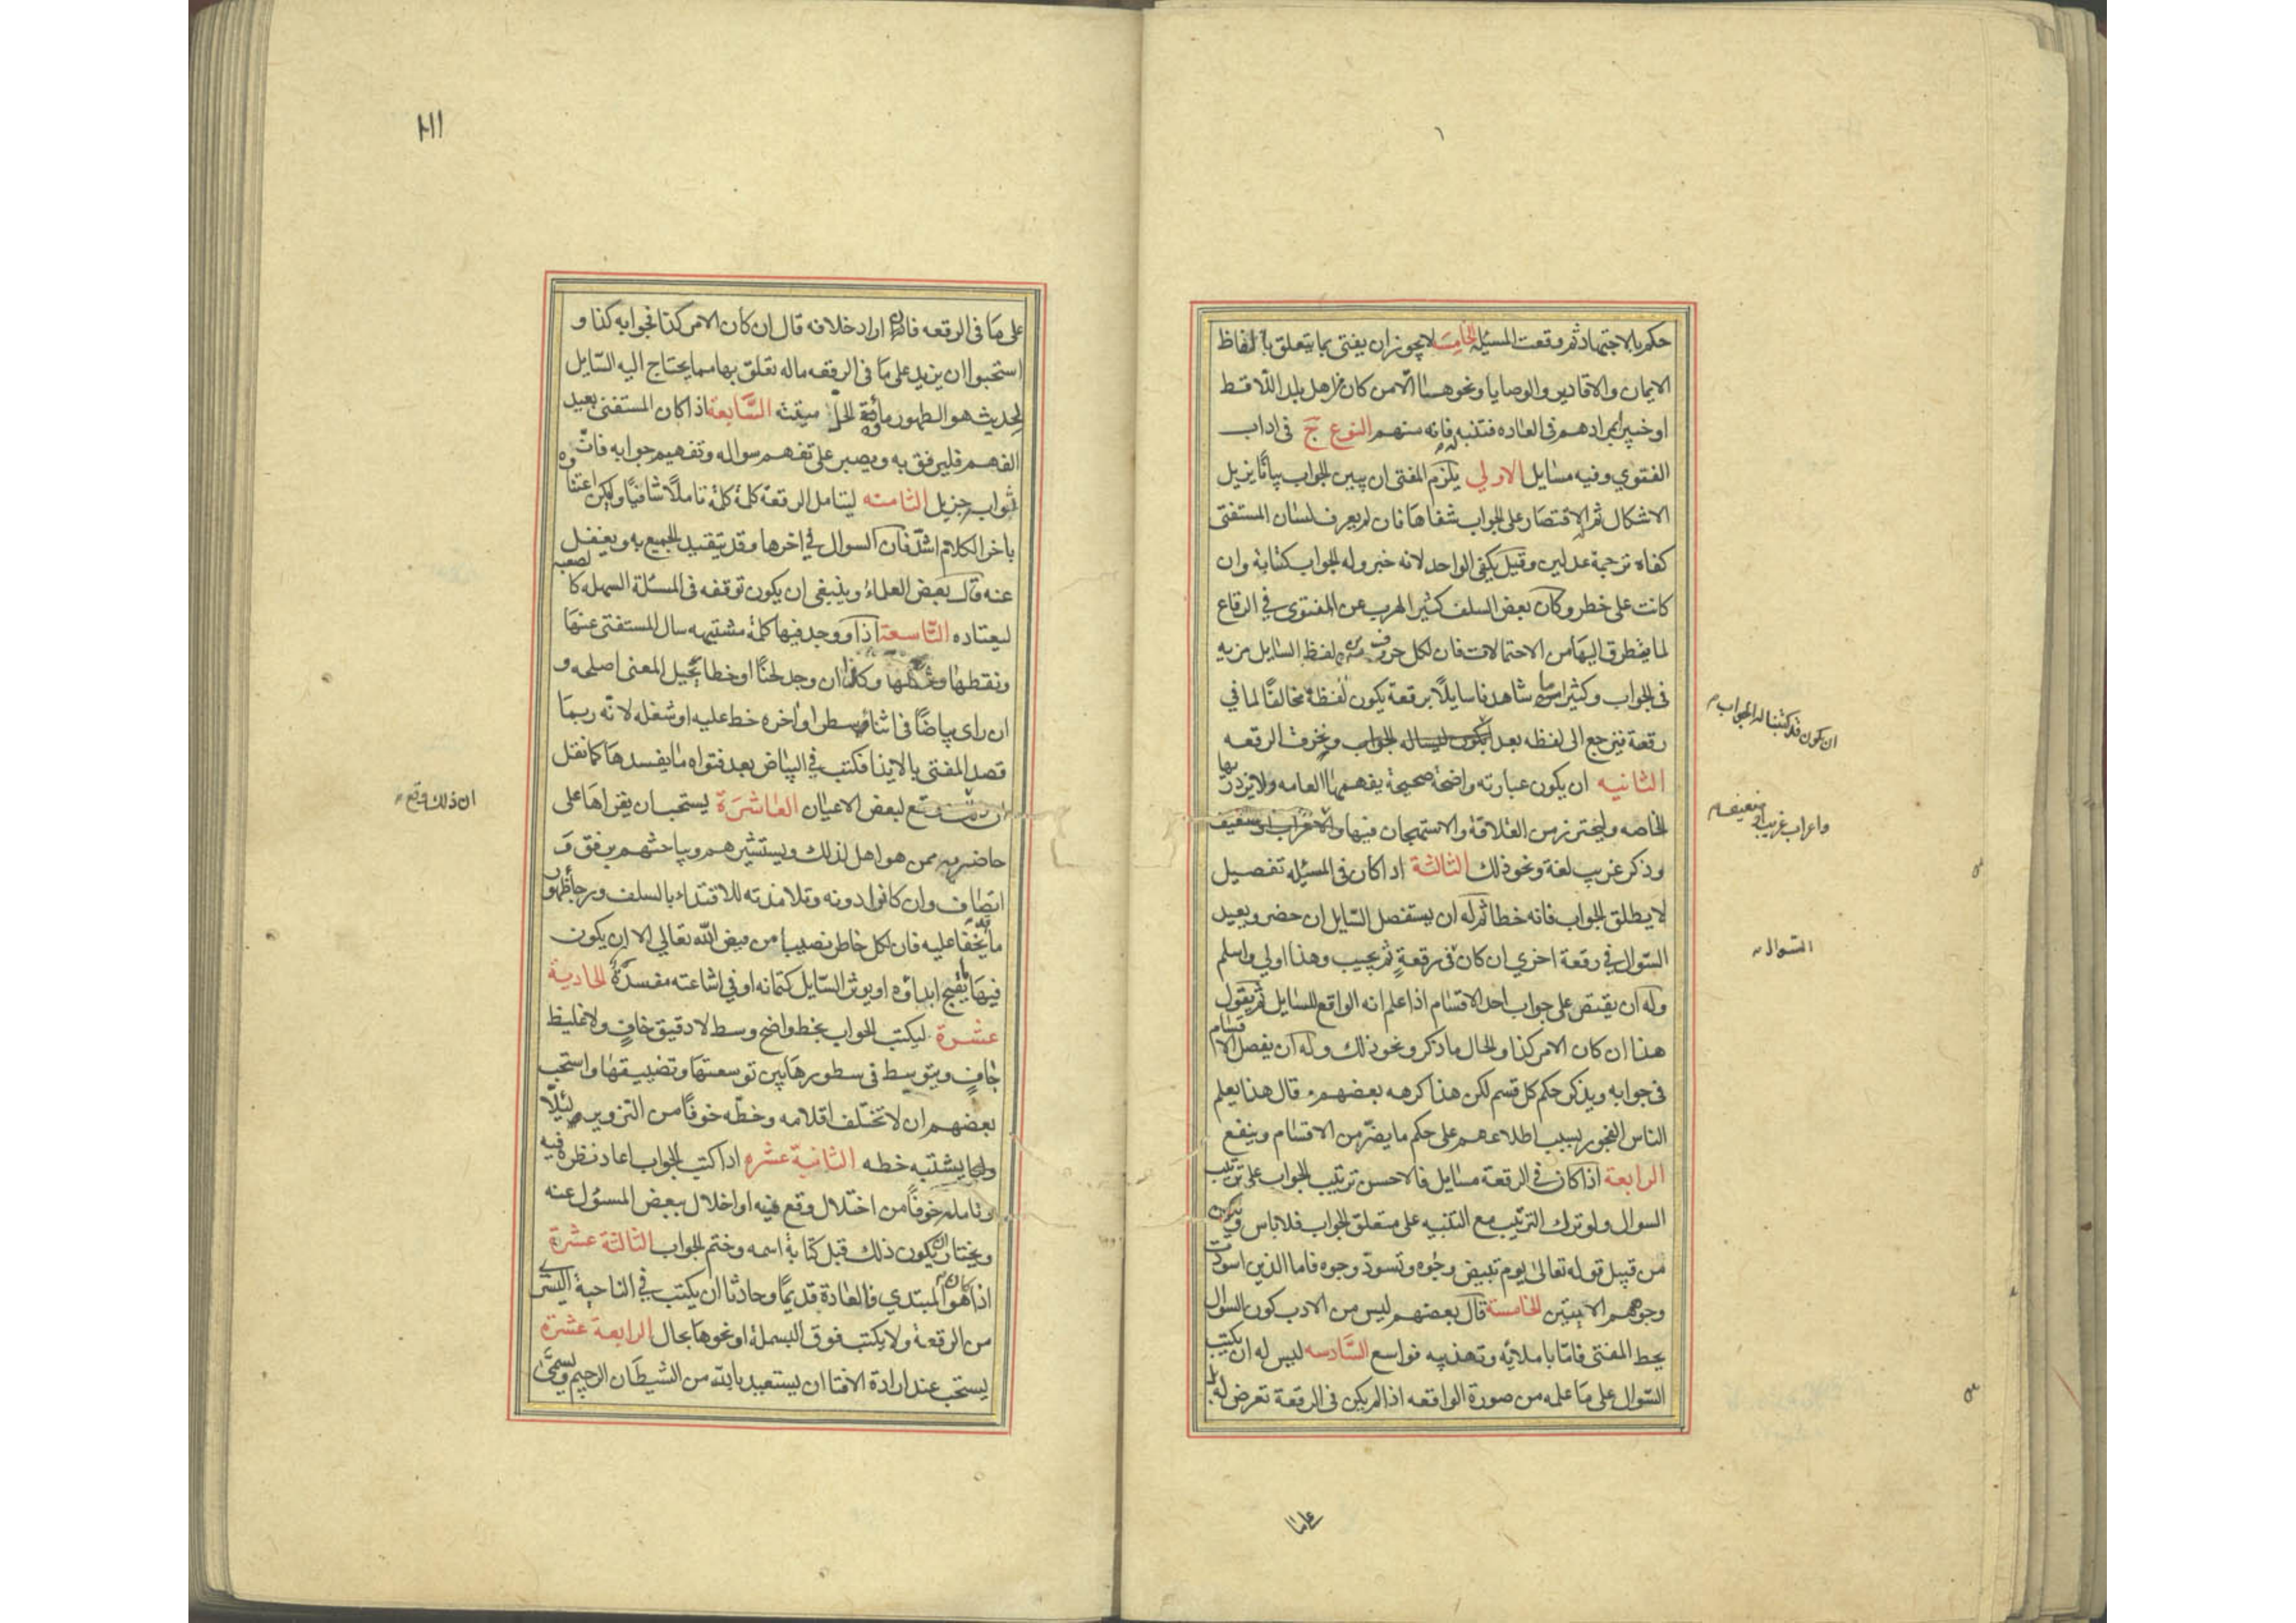 حكم بالاجتهاد ثم وقعت المسئلة الخامسة لا يجوز ان يفتى بما يتعلق بالفاظ
الايمان والاقارير والوصايا ونحوها الا من كان من اهل بلد اللافظ
او خبير بمرادهم فى العاده فتنبه فانه منهم النوع ج فى اداب
الفتوي وفيه مسايل الاولي يلزم المفتى ان يبين الجواب بيانًا يزيل
الاشكال ثم له الاقتصار على الجواب شفاها فان لم يعرف لسان المستفتى
كفاه ترجمة عدلين وقيل يكفى الواحد لانه خبر وله الجواب كتابة وان
كانت على خطر وكان بعض السلف كثير الهرب عن الفتوى في الرقاع
لما يتطرق اليها من الاحتمالات فان لكل حرف من لفظ السايل مزيه
فى الجواب وكثيرا ما شاهدنا سايلًا برقعة يكون لفظه مخالفًا لما في
رقعة فيرجع الى لفظه بعد ونخرق الرقعه
ان يكون قد كتبنا له الجواب
الثانيه ان يكون عبارته واضحة صحيحة يفهمها العامه ولا يزدريها
الخاصه وليحترز من القلاقة والاستهجان فيها
واعراب غريب او ضعيف
وذكر غريب لغة ونحو ذلك الثالثة اذا كان فى المسئله تفصيل
لا يطلق الجواب فانه خطا ثم له ان يستفصل السايل ان حضر ويعيد
السوال في رقعة اخري ان كان فى رقعةٍ ثم يجيب وهذا اولي واسلم
السوال
وله ان يقتصر على جواب احد الاقسام اذا علم انه الواقع للسايل ثم يقول
هذا ان كان الامر كذا والحال ما ذكر ونحو ذلك وله ان يفصل الاقسام
فى جوابه ويذكر حكم كل قسم لكن هذا كرهه بعضهم وقال هذا يعلم
الناس الفجور بسبب اطلاعهم على حكم ما يضر من الاقسام وينفع
الرابعة اذا كان في الرقعة مسايل فالاحسن ترتيب الجواب على ترتيب
السوال ولو ترك الترتيب مع التنبيه على متعلق الجواب فلا باس ويكون
من قبيل قوله تعالى يوم تبيض وجوه وتسود وجوه فاما الذين اسودت
وجوههم الايتين الخامسة قال بعضهم ليس من الادب كون السوال
بخط المفتى فاما باملائه وتهذيبه فواسع السادسه ليس له ان يكتب
السوال على ما علمه من صورة الواقعه اذا لم يكن فى الرقعة تعرض له بل
على ما
على ما فى الرقعه فان اراد خلافه قال ان كان الامر كذا فجوابه كذا و
استحبوا ان يزيد على ما فى الرقعه ماله تعلق بها مما يحتاج اليه السايل
لحديث هو الطهور ماؤه الحل ميتته السابعة اذا كان المستفتى بعيد
الفهم فليرفق به ويصبر على تفهم سواله وتفهيم جوابه فان
ثواب جزيل الثامنه ليتامل الرقعة كلمة كلمة تاملًا شافيًا وليكن اعتناوه
باخر الكلام اشد فان السوال في اخرها وقد يتقيد الجميع به ويغفل
عنه قال بعض العلماء وينبغى ان يكون توقفه فى المسئلة السهله كالصعبه
ليعتاده التاسعة اذا وجد فيها كلمة مشتبهه سال المستفتى عنها
ونقطها وشكلها وكذا ان وجد لحنًا او خطا يحيل المعنى اصلحه و
ان راى بياضًا فى اثناء سطر او اخره خط عليه او شغله لانه ربما
قصد المفتى بالايذا فكتب في البياض بعد فتواه ما يفسدها كما نقل
ان ذلك وقع لبعض الاعيان العاشرة يستحب ان يقراها على
حاضريه ممن هو اهل لذلك ويستشيرهم ويباحثهم برفق و
انصاف وان كانوا دونه وتلامذته للاقتداء بالسلف ورجا ظهور
ما يخفا عليه فان لكل خاطر نصيبا من فيض الله تعالي الا ان يكون
فيها ما يقبح ابداؤه او يوثر السايل كتمانه او في اشاعته مفسدة الحادية
عشرة ليكتب الجواب بخط واضح وسط لا دقيق خافٍ ولا غليظ
جافٍ ويتوسط فى سطورها بين توسعتها وتضييقها واستحب
بعضهم ان لا تختلف اقلامه وخطه خوفًا من التزوير ولئلا
يشتبه خطه الثانية عشره اذا كتب الجواب اعاد نظره فيه
وتامله خوفًا من اختلال وقع فيه او اخلال ببعض المسؤل عنه
ويختار ان يكون ذلك قبل كتابة اسمه وختم الجواب الثالثة عشرة
اذا كان هو المبتدي فالعادة قديمًا وحادثا ان يكتب في الناحية اليسرى
من الرقعة ولا يكتب فوق البسملة او نحوها بحال الرابعة عشرة
يستحب عند ارادة الافتا ان يستعيذ بالله من الشيطان الرجيم ويسمى